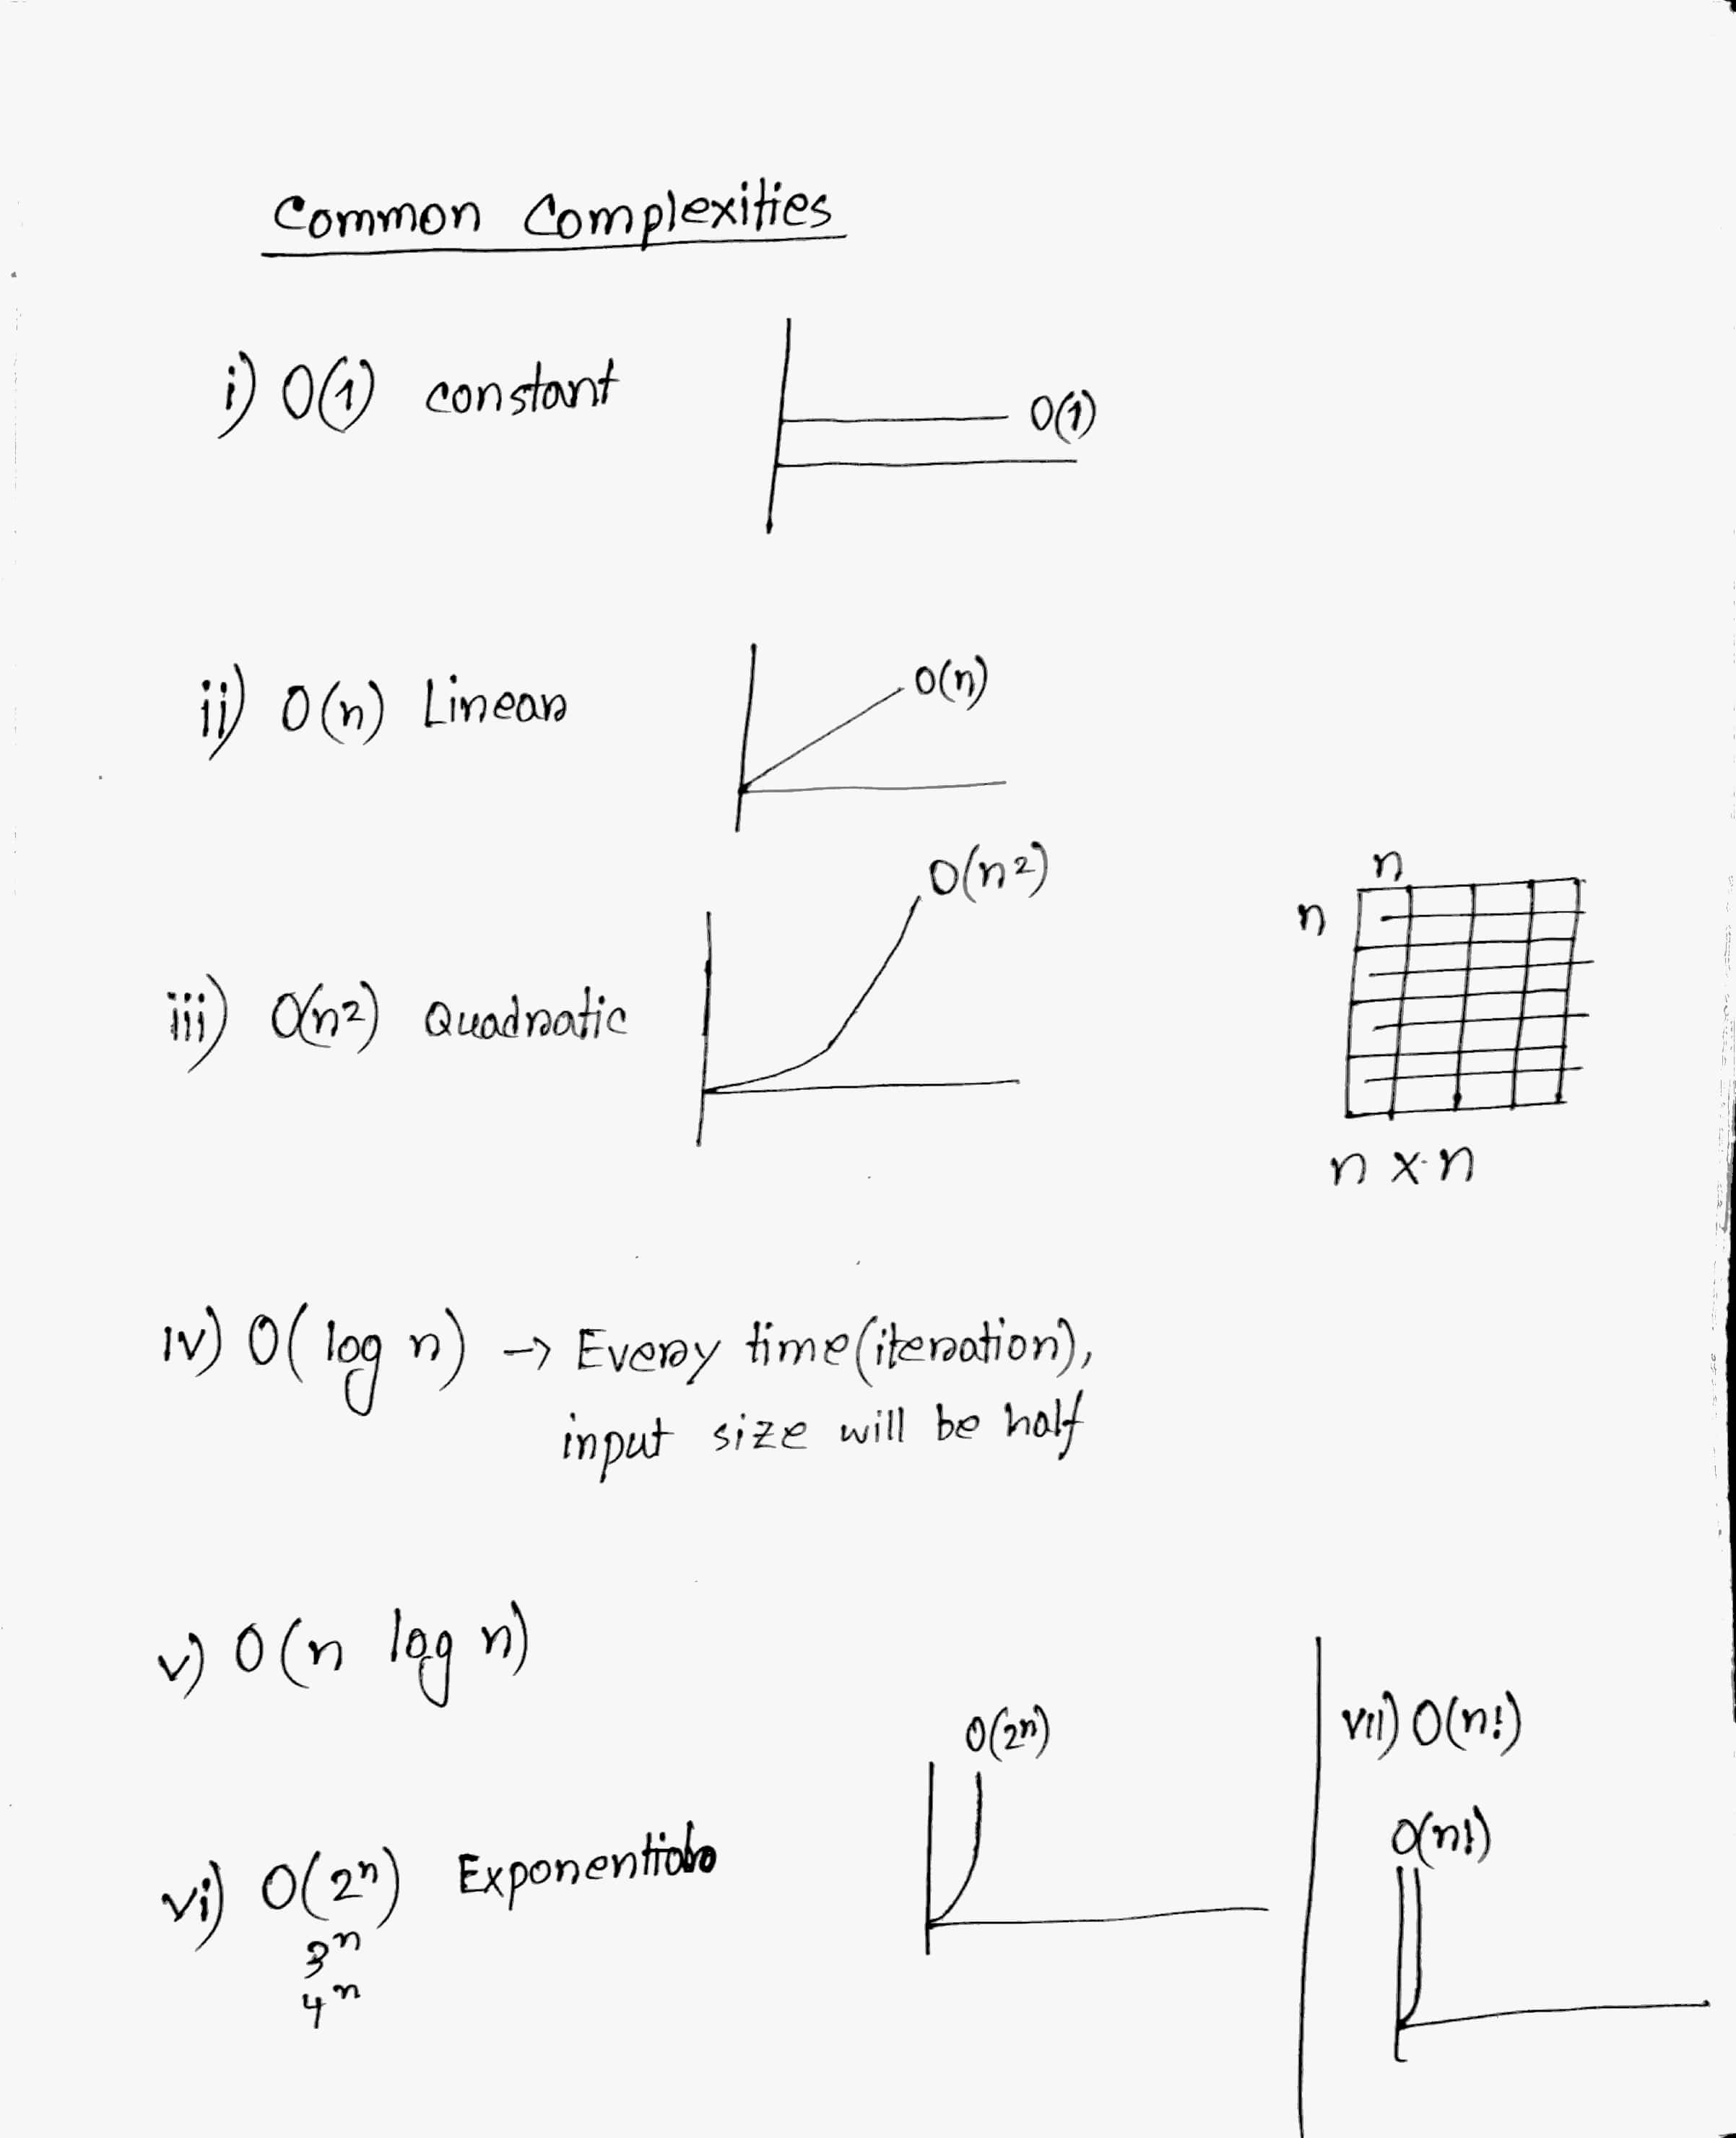 Common Complexities
i) O(1) constant
O(1)
ii) O(n) Linear
O(n)
O(n²)
iii) O(n²) Quadratic
n
n
n x n
iv) O(log n) → Every time (iteration),
input size will be half
v) O(n log n)
vi) O(2ⁿ) Exponential
3ⁿ
4ⁿ
O(2ⁿ)
vii) O(n!)
O(n!)